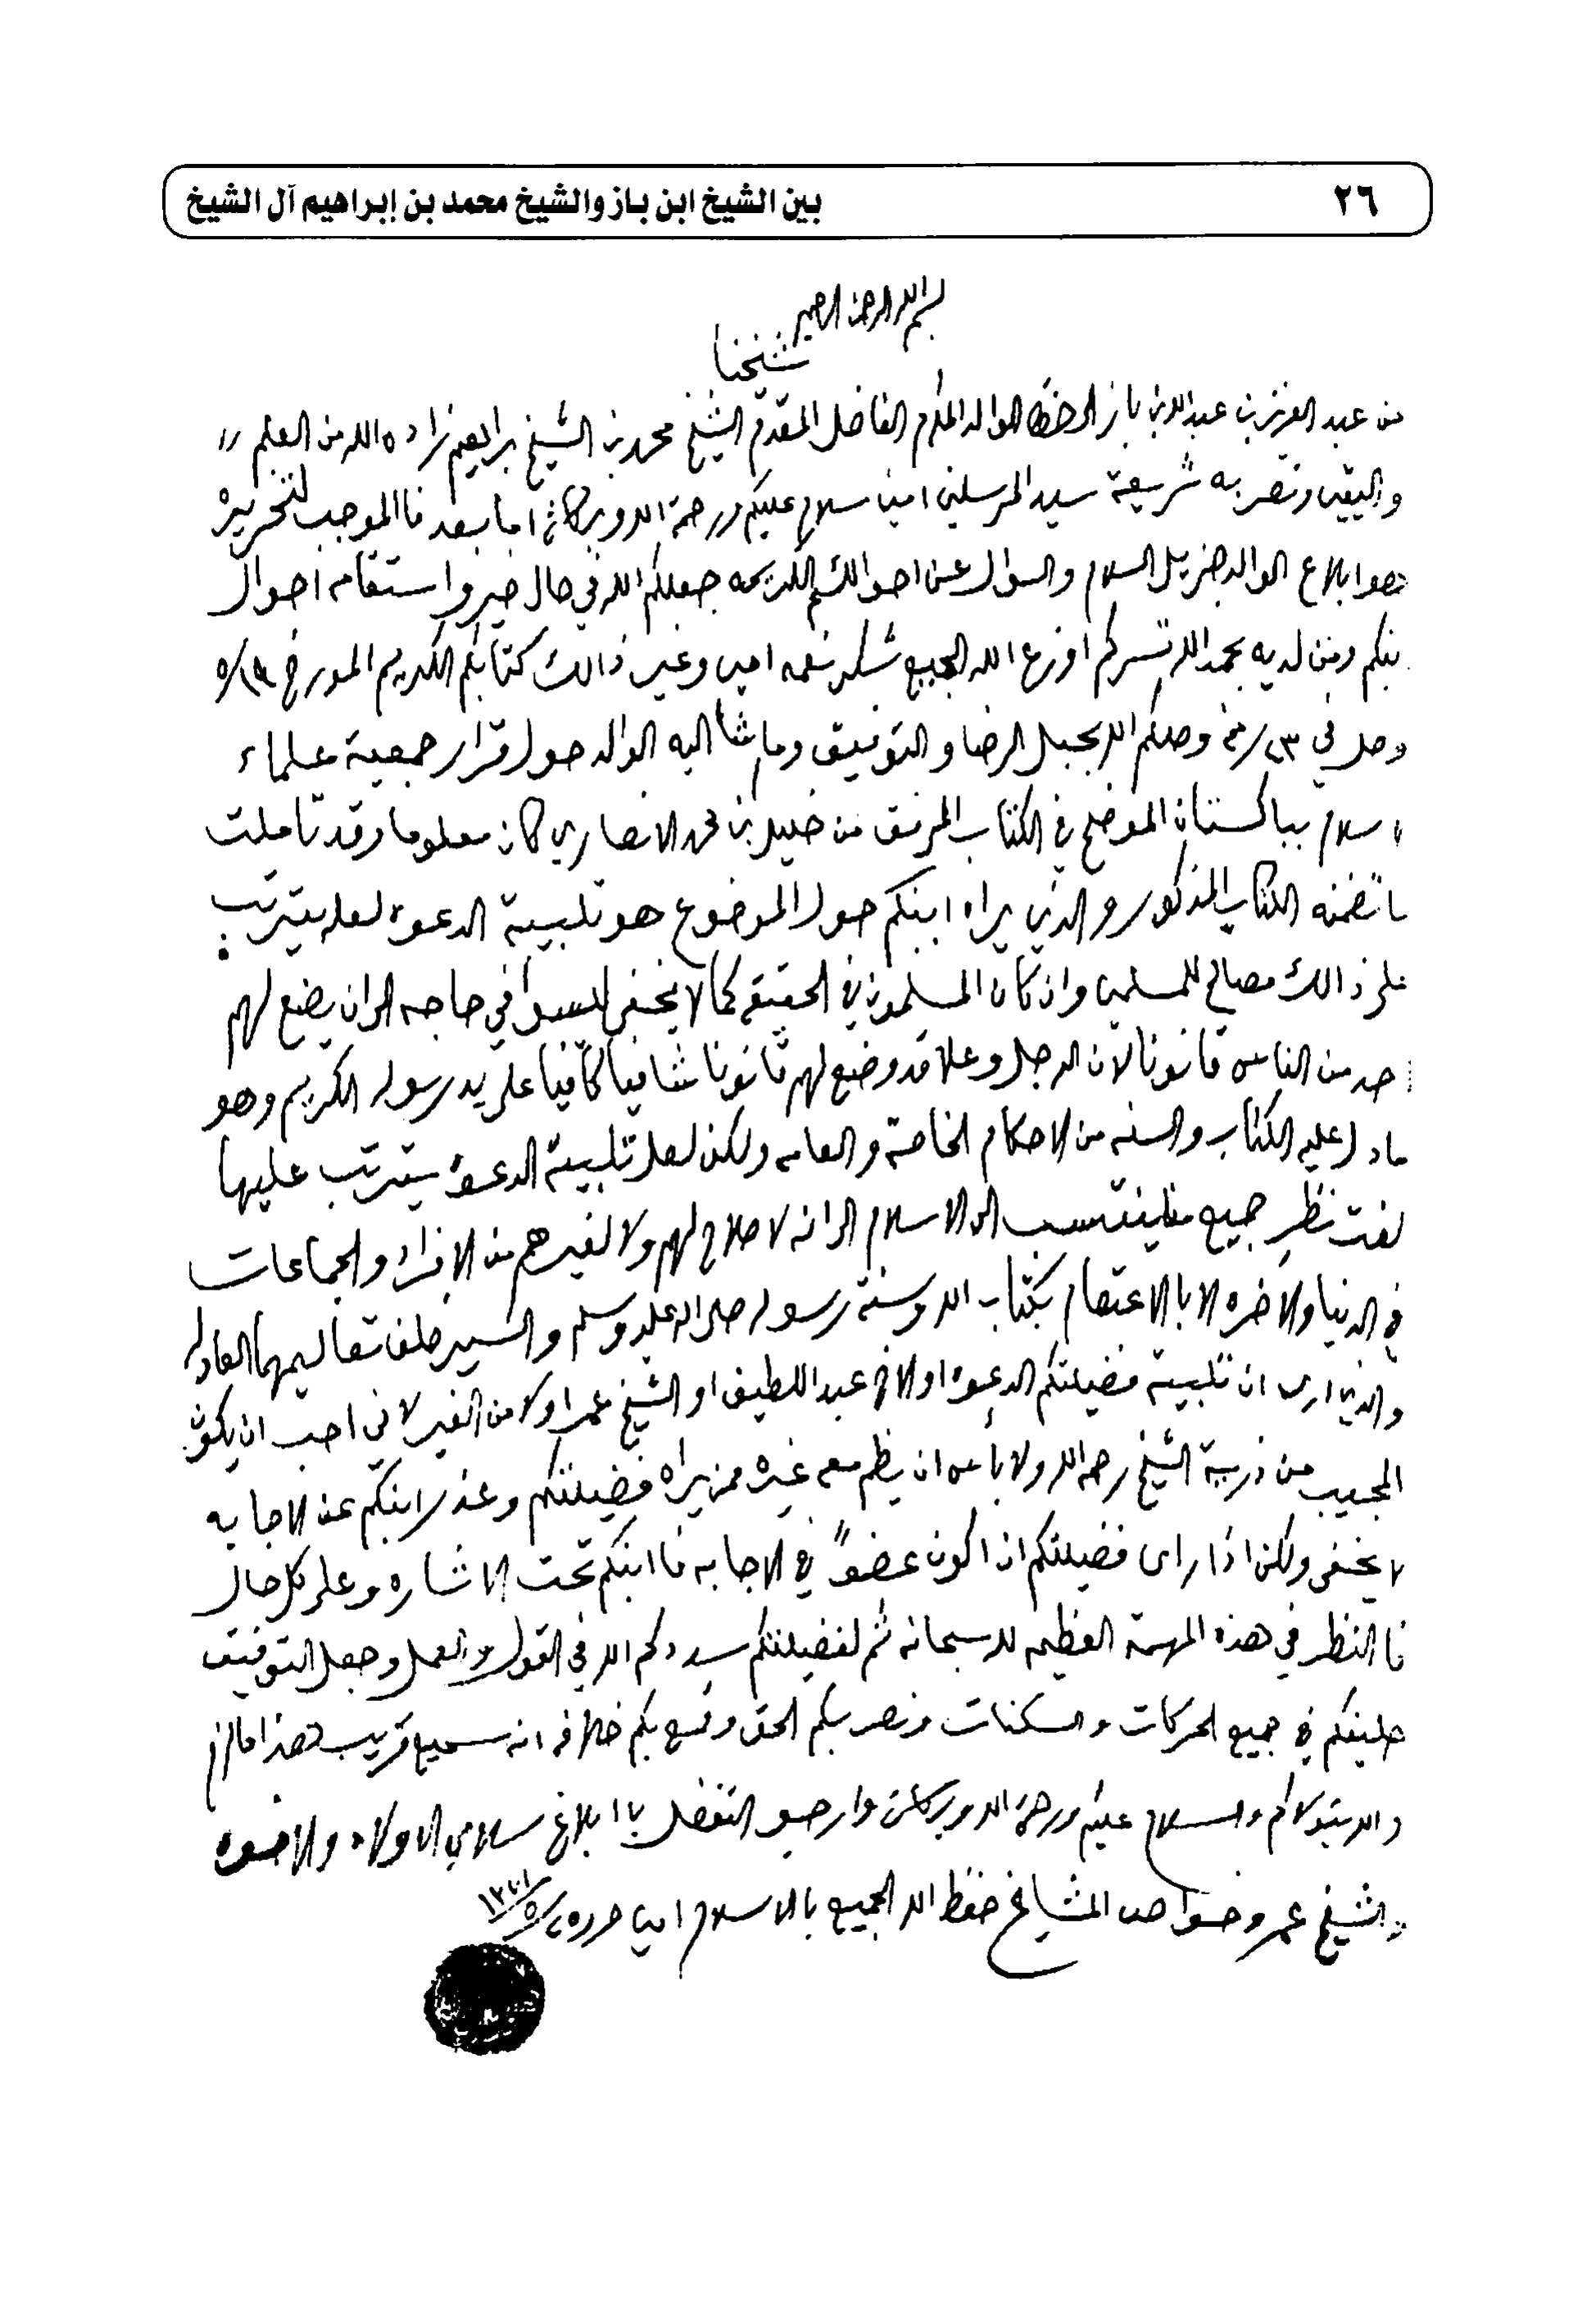 ٢٦
بين الشيخ ابن باز والشيخ محمد بن إبراهيم آل الشيخ
بسم الله الرحمن الرحيم
شيخنا
من عبد العزيز بن عبدالله بن باز الى حضرة الوالد المكرم الفاضل المقدم الشيخ محمد بن الشيخ ابراهيم زاده الله من العلم
واليقين ونصر به شريعة سيد المرسلين امين سلام عليكم ورحمة الله وبركاته اما بعد فا الموجب لتحريره
هو ابلاغ الوالد جزيل السلام والسؤال عن احوالكم الكريمه جعلكم الله في حال خير واستقامه احوال
ابنكم ومن لديه بحمد الله تسركم اوزع الله الجميع شكر نعمه امين وغير ذالك كتابكم الكريم المورخ
وصل في ٢٣ منه وصلكم الله بحبل الرضا والتوفيق وما اشا اليه الوالد حول قرار جمعية علماء
اسلام بباكستان الموضح في الكتاب المرفق من خليل بن محمد الانصاري كان معلوما وقد تاملت
ما تضمنه الكتاب المذكور والذي يراه ابنكم حول الموضوع هو تلبية الدعوه لعله يترتب
على ذالك مصالح للمسلمين وان كان المسلمون في الحقيقه كما لا يخفى ليسوا في حاجه الى ان يضع لهم
احد من الناس قانونا لان الرب جل وعلا قد وضع لهم قانونا شافيا كافيا على يد رسوله الكريم وهو
ما دل عليه الكتاب والسنه من الاحكام الخاصة والعامه ولكن لعل تلبية الدعوة يترتب عليها
لفت نظر جميع من ينتسب الى الاسلام الى انه لا صلاح لهم ولا لغيرهم من الافراد والجماعات
في الدنيا والاخره الا بالاعتصام بكتاب الله وسنة رسوله صلى الله عليه وسلم والسير خلف تعاليمهما العادله
والذي ارى ان تلبية فضيلتكم الدعوه او الاخ عبد اللطيف او الشيخ عمر اولا من الغير لاني احب ان يكون
المجيب من ذرية الشيخ رحمه الله ولا بأس ان يظم معه غيره ممن يراه فضيلتكم وعذر ابنكم عن الاجابه
لا يخفى ولكن اذا راى فضيلتكم ان اكون عضواً في الاجابه فا ابنكم تحت الاشاره وعلى كل حال
فا النظر في هذه المهمة العظيمه لله سبحانه ثم لفضيلتكم سددكم الله في القول والعمل وجعل التوفيق
حليفكم في جميع الحركات والسكنات ونصر بكم الحق وقمع بكم خلافه انه سميع قريب هذا ما لزم
والله يتولاكم والسلام عليكم ورحمة الله وبركاته وارجو التفضل با ابلاغ سلامي الاولاد والاخوه
والشيخ عمر وخواص المشايخ حفظ الله الجميع بالاسلام امين حرر